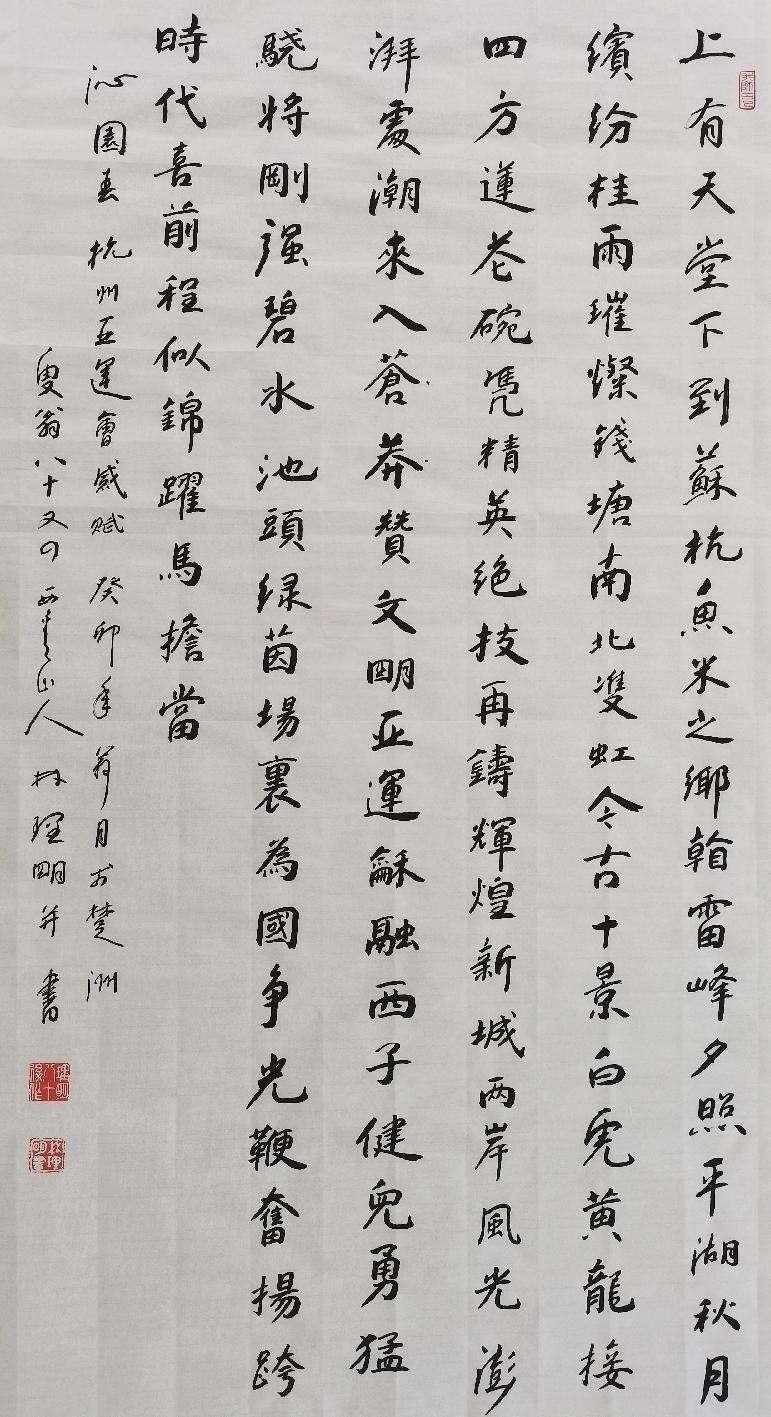 上有天堂下到蘇杭魚米之鄉翰雷峰夕照平湖秋月
繽紛桂雨璀燦錢塘南北雙虹今古十景白虎黄龍接
四方蓮花碗凭精英绝技再鑄輝煌新城两岸風光澎
湃處潮來入蒼莽贊文明亚運龢融西子健兒勇猛
驍將剛强碧水池頭緑茵場裏為國争光鞭奮揚跨
時代喜前程似錦躍馬擔當
沁園春杭州亚運會感赋 癸卯年 月於楚洲
叟翁八十又四 山人林理明并書